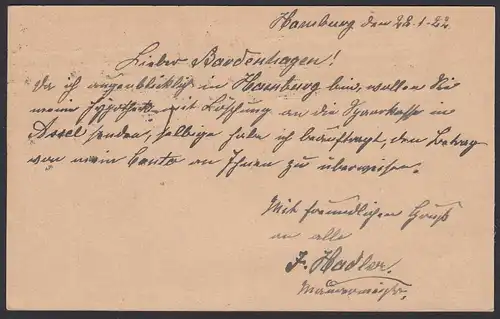 Hamburg den 22.1.22.
Lieber Bardenhagen!
Da ich augenblicklich in Hamburg bin, wollen Sie
meine Hypothek mit Löschung an die Sparkasse in
Assel senden, selbige habe ich beauftragt, den Betrag
von mein Conto an Ihnen zu überweisen.
Mit freundlichen Gruß
an alle
J. Hadler.
Mauermeister.